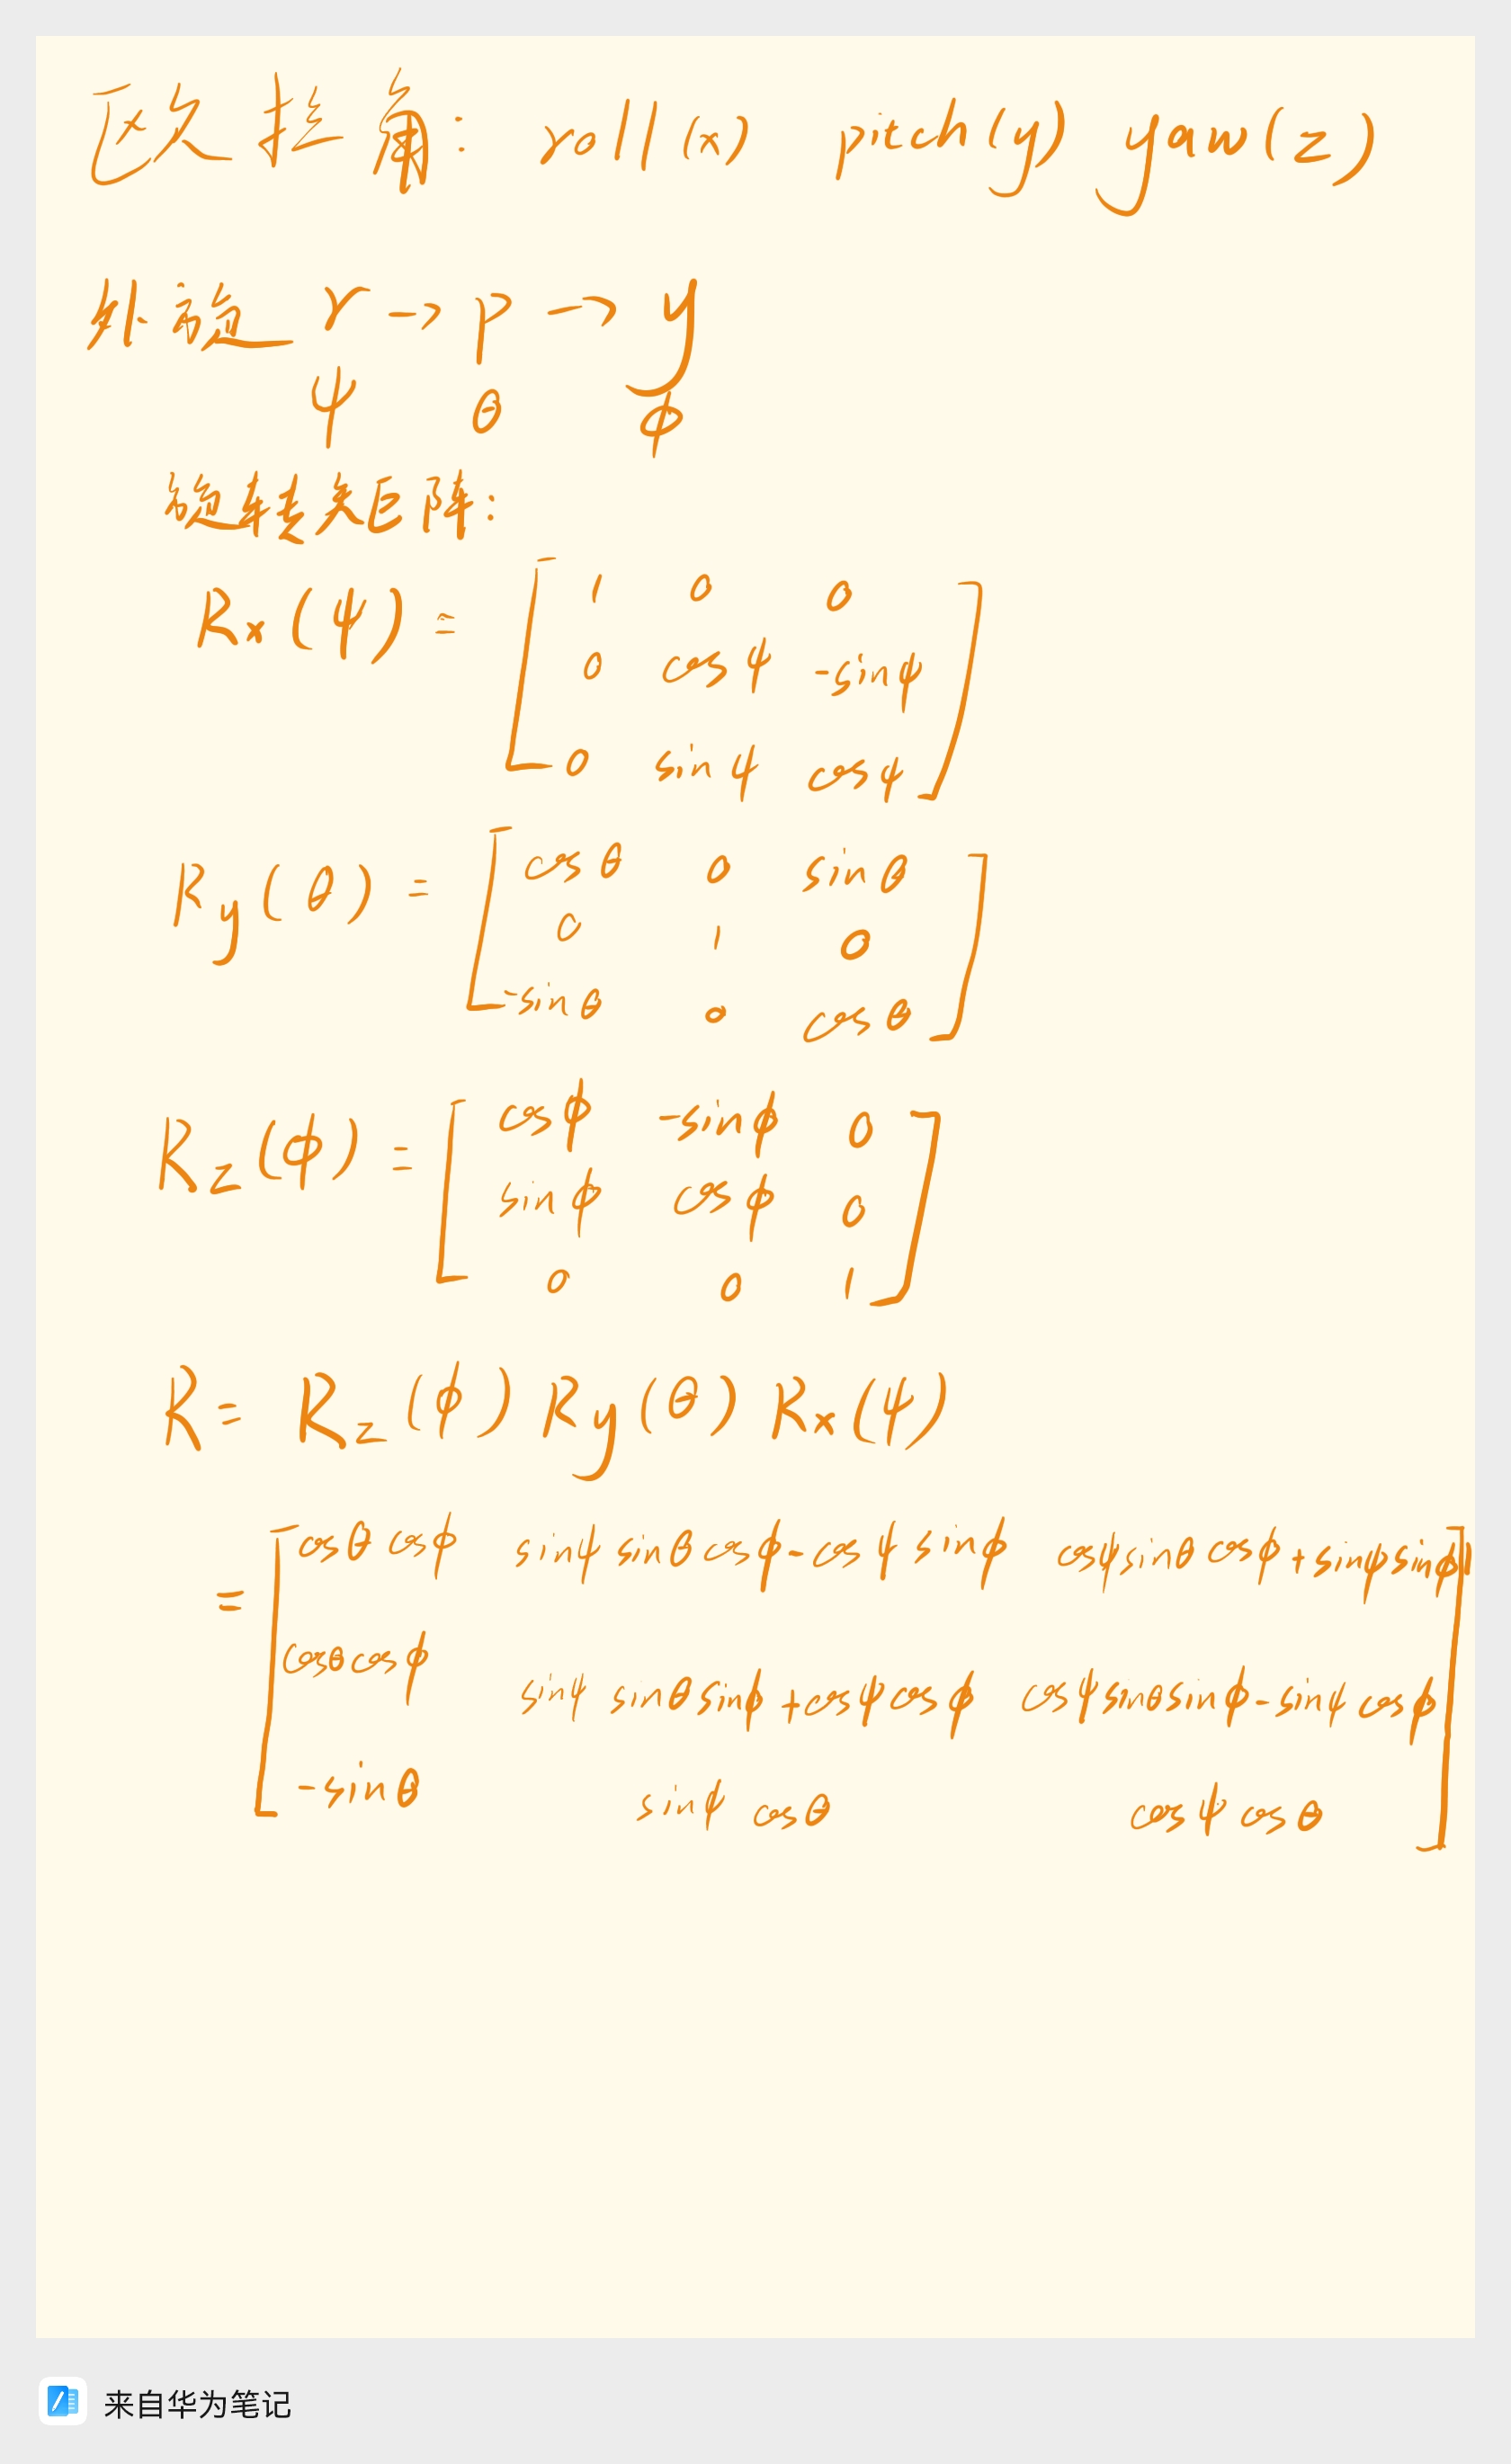 欧拉角: roll(x) pitch(y) yaw(z)
外旋 r→p→y
ψ θ ϕ
旋转矩阵:
Rx(ψ) = [ 1 0 0
0 cosψ -sinψ
0 sinψ cosψ ]
Ry(θ) = [ cosθ 0 sinθ
0 1 0
-sinθ 0 cosθ ]
Rz(ϕ) = [ cosϕ -sinϕ 0
sinϕ cosϕ 0
0 0 1 ]
R = Rz(ϕ) Ry(θ) Rx(ψ)
= [ cosθ cosϕ sinψ sinθ cosϕ - cosψ sinϕ cosψ sinθ cosϕ + sinψ sinϕ ]
cosθ cosϕ sinψ sinθ sinϕ + cosψ cosϕ cosψ sinθ sinϕ - sinψ cosϕ
-sinθ sinψ cosθ cosψ cosθ ]
来自华为笔记